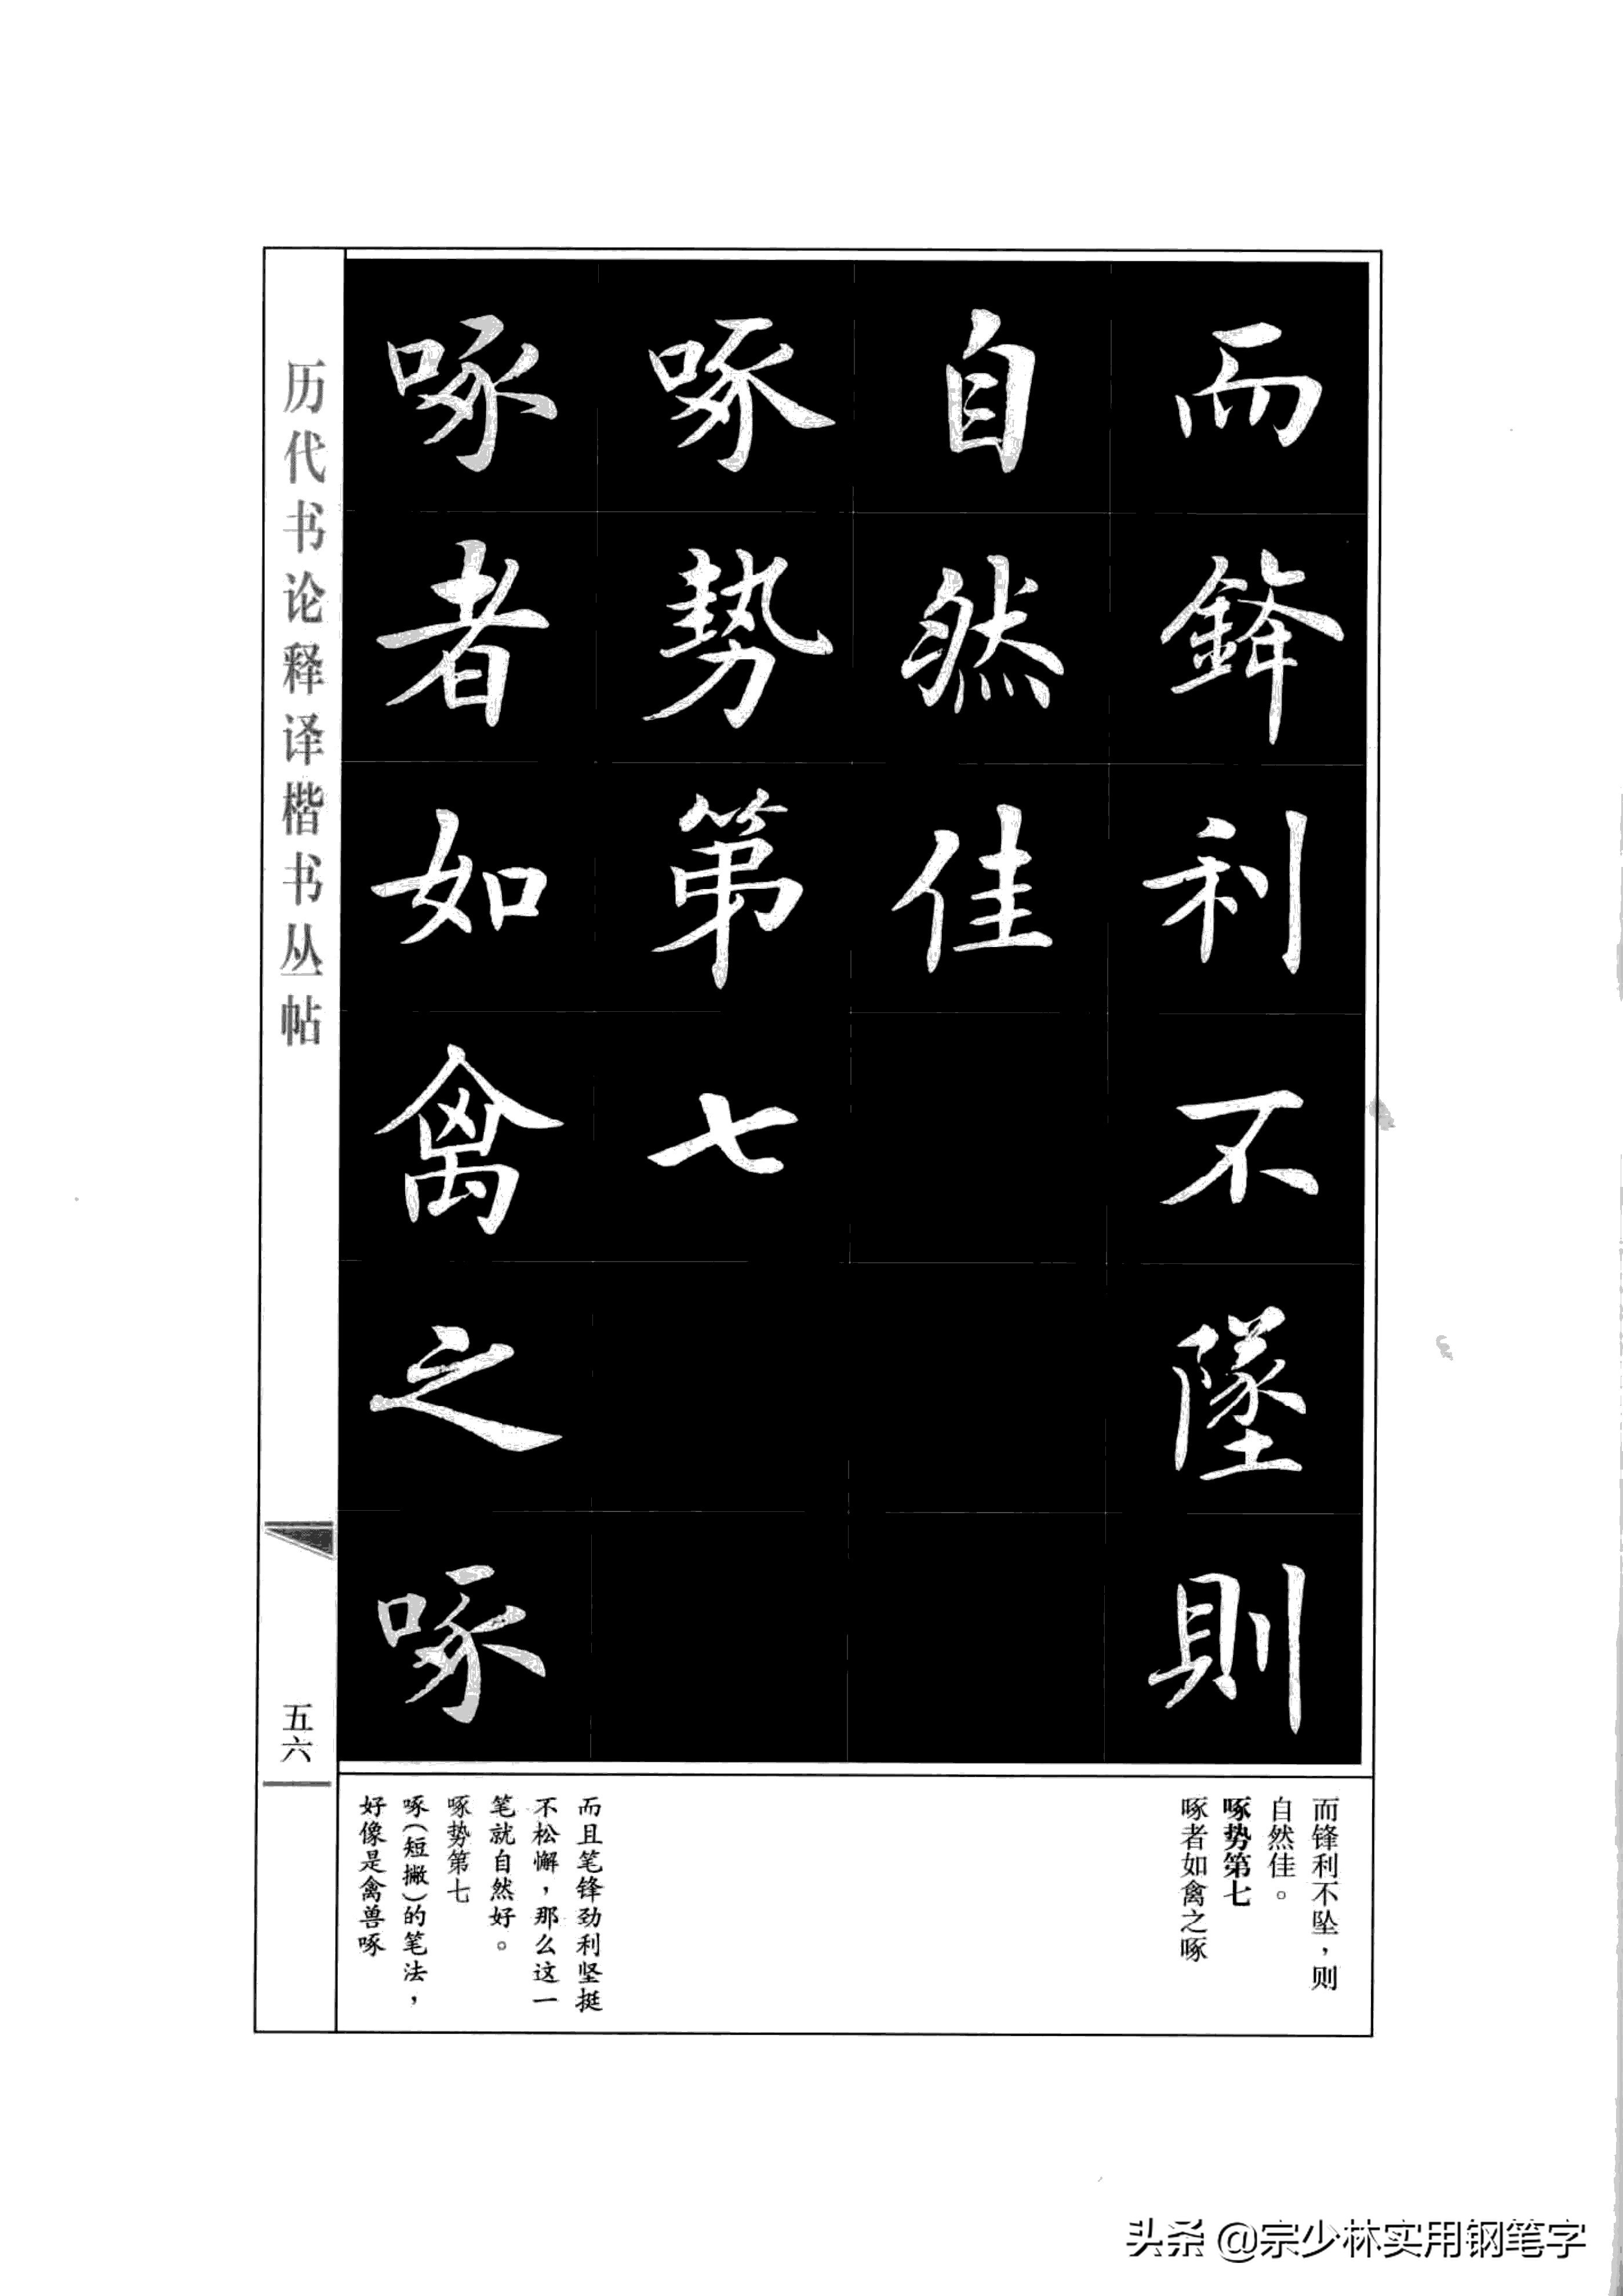 而鋒利不墜則
自然佳
啄勢第七
啄者如禽之啄
历代书论释译楷书丛帖
五六
而锋利不坠，则
自然佳。
啄势第七
啄者如禽之啄
而且笔锋劲利坚挺
不松懈，那么这一
笔就自然好。
啄势第七
啄（短撇）的笔法，
好像是禽兽啄
头条 @宗少林实用钢笔字